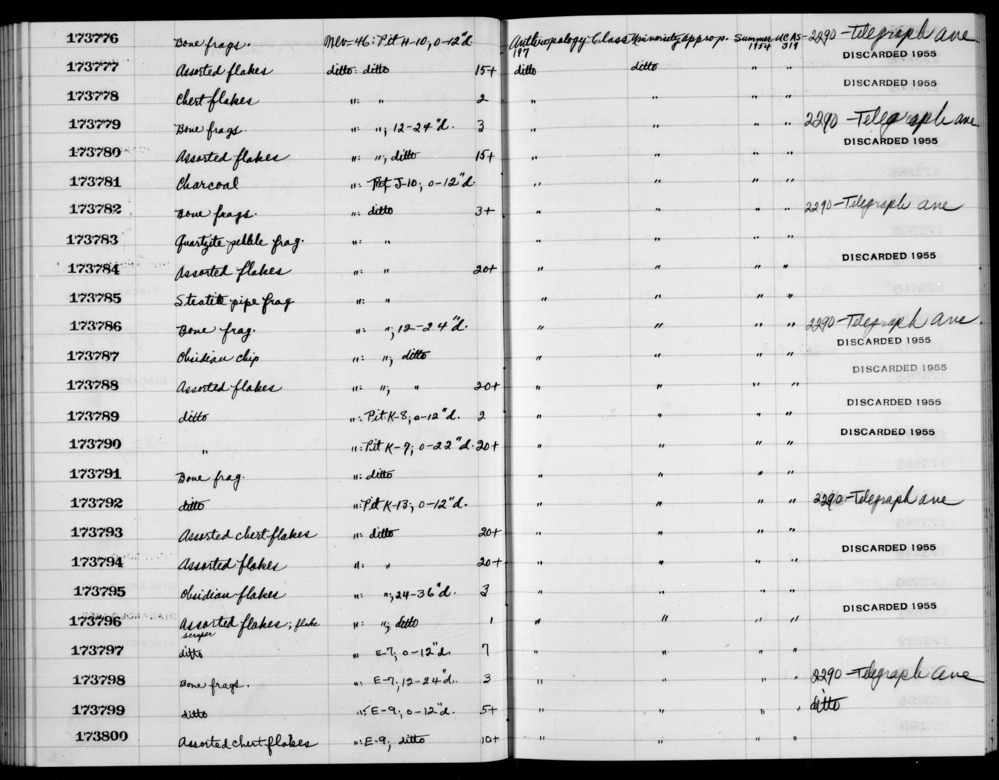 173776 Bone frags. Mrv-46: Pit H-10; 0-12"d. Anthropology Class Minority approp. Summer UCAS- 2290-Telegraph ave
197 1954 319
DISCARDED 1955
173777 Assorted flakes ditto: ditto 15+ ditto ditto " "
173778 Chert flakes ": " 2 " " " "
173779 Bone frags. ": "; 12-24"d. 3 " " " " 2290-Telegraph ave
DISCARDED 1955
173780 Assorted flakes ": "; ditto 15+ " " " "
173781 Charcoal ": Pit J-10; 0-12"d. " " " "
173782 Bone frags. ": ditto 3+ " " " " 2290-Telegraph ave
173783 Quartzite pebble frag. ": " " " " "
DISCARDED 1955
173784 Assorted flakes ": " 20+ " " " "
173785 Steatite pipe frag ": " " " " "
173786 Bone frag. ": "; 12-24"d. " " " " 2290-Telegraph ave.
DISCARDED 1955
173787 Obsidian chip ": "; ditto " " " "
DISCARDED 1955
173788 Assorted flakes ": "; " 20+ " " " "
DISCARDED 1955
173789 ditto ": Pit K-8; 0-12"d. 2 " " " "
DISCARDED 1955
173790 " ": Pit K-9; 0-22"d. 20+ " " " "
173791 Bone frag. ": ditto " " " "
173792 ditto ": Pit K-13; 0-12"d. " " " " 2290-Telegraph ave
173793 Assorted chert flakes ": ditto 20+ " " " "
DISCARDED 1955
173794 Assorted flakes ": " 20+ " " " "
173795 Obsidian flakes ": "; 24-36"d. 3 " " " "
DISCARDED 1955
173796 Assorted flakes; flake ": "; ditto 1 " " " "
scraper
173797 ditto " E-7; 0-12"d. 7 " " " "
173798 Bone frags. ": E-7; 12-24"d. 3 " " " " 2290-Telegraph ave
173799 ditto ": E-9; 0-12"d. 5+ " " " " ditto
173800 Assorted chert flakes ": E-9; ditto 10+ " " " "